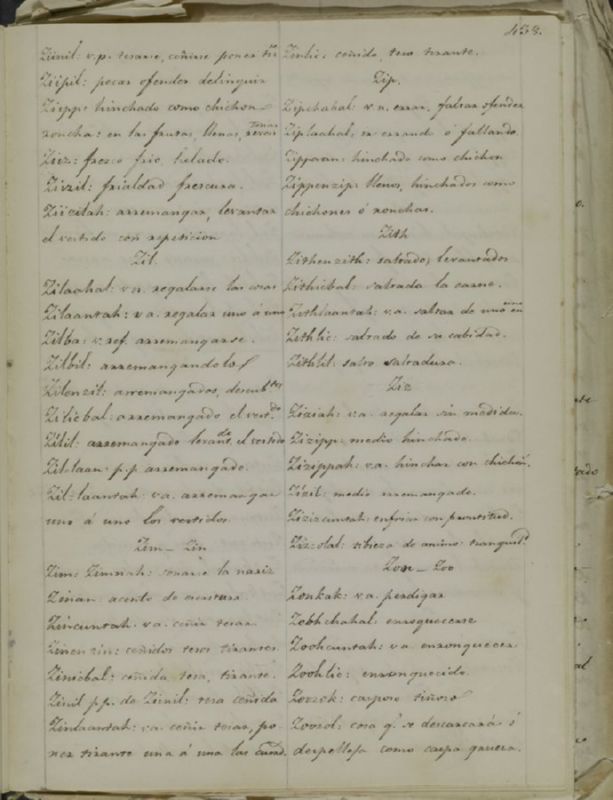 438.
Ziinil: v.p. tesarse, ceñirse poner
Ziipil: pecar ofender delinquir
Ziipp: hinchado como chichon
roncha: en las frutas, llenas,
Ziiz: fresco frio, helado.
Ziizil: frialdad frescura.
Ziizilah: arremangar, levantar
el vestido con repeticion
Zil.
Zilaahal: v.n. regalarse las cosas
Zilaantah: v.a. regalar uno á uno
Zilba: v. ref. arremangarse.
Zilbil: arremangandolo
Zilenzil: arremangados,
Zilicbal: arremangado el
Zilil: arremangado el vestido
Zil-laan: p.p. arremangado.
Zil-laantah: v.a. arremangar
uno á uno los vestidos.
Zim_Zin
Zim: Zimnah: sonarse la nariz
Zinan: acento de escritura
Zincuntah. v.a. ceñir tesar.
Zinenzin: ceñidos tesos tirantes
Zinicbal: ceñida tesa, tirante.
Zinil p.p. de Ziinil: tesa ceñida
Zinlaantah: v.a. ceñir tesar, po-
ner tirante una á una las
Zinlic: ceñido, teso tirante.
Zip.
Zipchahal: v.n. errar, faltar ofender
Ziplaahal, ir errando ó faltando
Zippaan: hinchado como chichon
Zippenzip: llenos, hinchados como
chichones ó ronchas.
Zith
Zithenzith: saltados, levantados
Zithicbal: saltada la carne.
Zithlaantah: v.a. saltar de uno en
Zithlic: saltado de su cabidad.
Zithlil: salto saltadura.
Ziz
Ziziah: v.a. regalar sin medida.
Zizipp: medio hinchado.
Zizippah: v.a. hinchar con
Zizil: medio arremangado.
Zizcuntah: enfriar con prontitud.
Ziz-olal: tibieza de animo:
Zon_Zoo
Zonkak: v.a. perdigar
Zoohchahal enroquecerse
Zoohcuntah: v.a. enronquecer
Zoohlic: enronquecido.
Zoozok: casposo tiñoso
Zoozol: cosa q.e se descascará ó
despelleja como caspa gruesa.